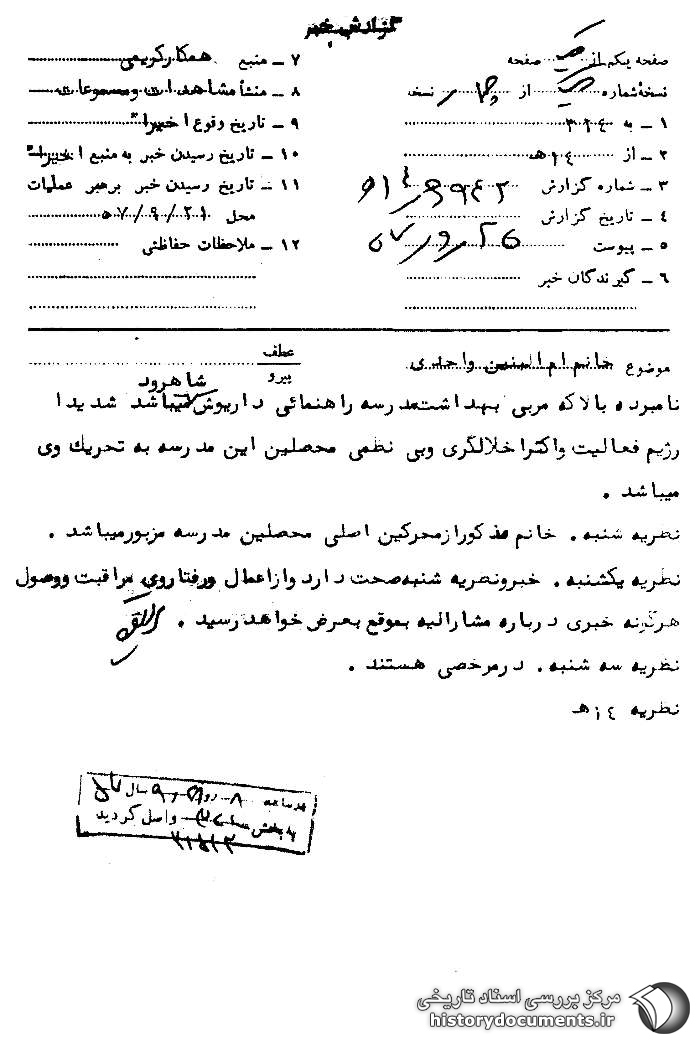 گزارش خبر
صفحه یکم از صفحه
نسخه شماره از نسخه
۱ ـ به ۳۱٤
۲ ـ از ۱٤ هـ
۳ ـ شماره گزارش
٤ ـ تاریخ گزارش
۵ ـ پیوست
۶ ـ گیرندگان خبر
۷ ـ منبع همکار کریمی
۸ ـ منشأ مشاهدات و مسموعات
۹ ـ تاریخ وقوع اخیرا"
۱۰ ـ تاریخ رسیدن خبر به منبع اخیرا"
۱۱ ـ تاریخ رسیدن خبر برهبر عملیات
محل ۵۷/۹/۲۱
۱۲ ـ ملاحظات حفاظتی
موضوع خانم ام البنین واحدی
عطف
پیرو
شاهرود
نامبرده بالا که مربی بهداشت مدرسه راهنمائی داریوش میباشد شدیدا
رژیم فعالیت و اکثرا خلالگری و بی نظمی محصلین این مدرسه به تحریك وی
میباشد .
نظریه شنبه . خانم مذکور از محرکین اصلی محصلین مدرسه مزبور میباشد .
نظریه یکشنبه . خبر و نظریه شنبه صحت دارد و از اعمال و رفتار وی مراقبت و وصول
هرگونه خبری درباره مشارالیه بموقع بعرض خواهد رسید .
نظریه سه شنبه . در مرخصی هستند .
نظریه ۱٤ هـ
در ساعه ۸ روز سال ۵۷
به بخش واصل گردید
مرکز بررسی اسناد تاریخی
historydocuments.ir